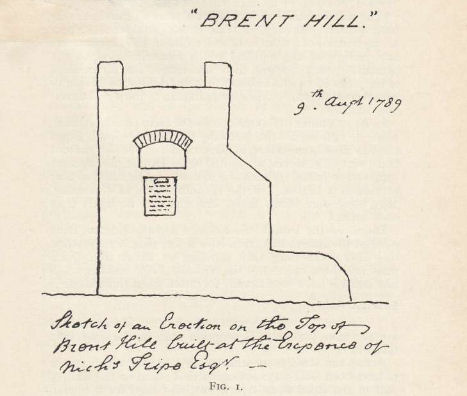 "BRENT HILL."
9th. Augt 1789
Sketch of an Erection on the Top of
Brent Hill built at the Expence of
Nichs Tripe Esqr. —
FIG. 1.